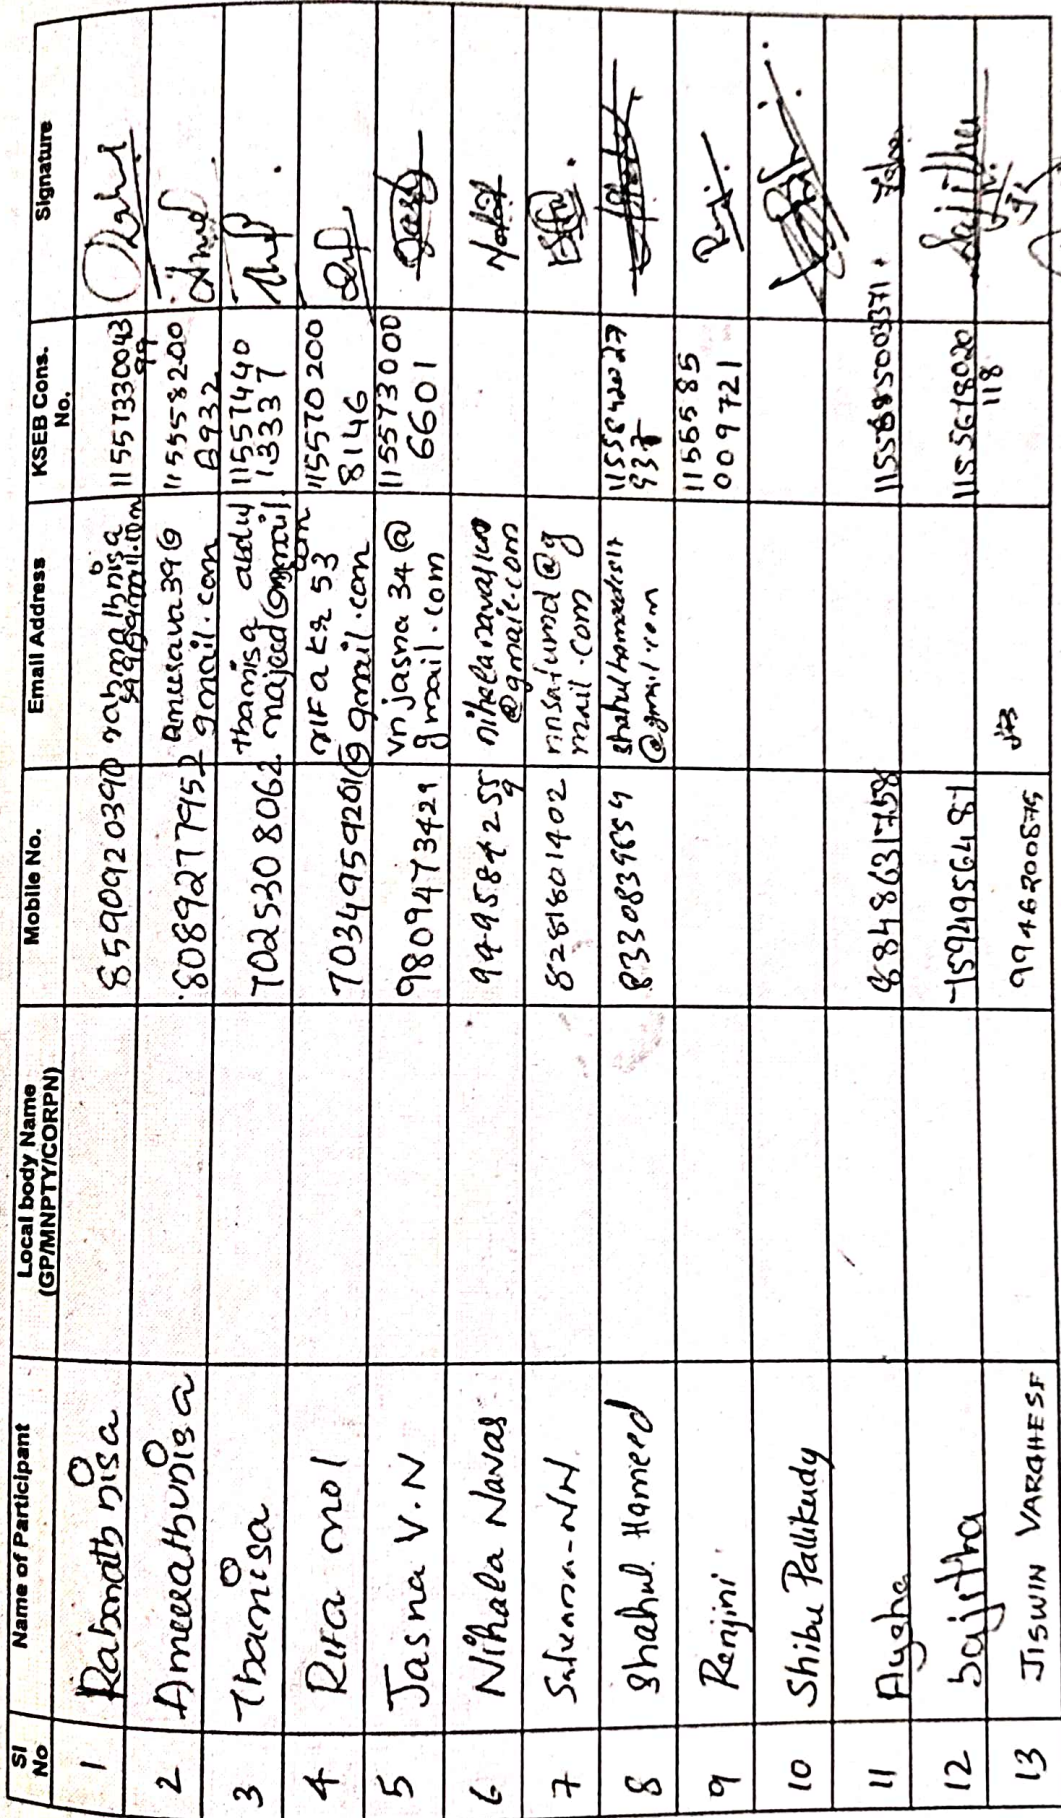 Sl No Name of Participant Local body Name (GP/MNPTY/CORPN) Mobile No. Email Address KSEB Cons. No. Signature
1 Rahmath nisa 8590920390 rahmathnisa
5998@gmail.com 11557330043
99
2 Ameerathunisa 8089277952 Ameerava39@
gmail.com 115558200
8932
3 Thanisa 7025308062 thanisa abdul
majeed@gmail
com 11557440
13337
4 Rifa mol 7034959201 rifa kr 53
@gmail.com 115570200
8146
5 Jasna V.N 9809473429 vnjasna34@
gmail.com 115573000
6601
6 Nihala Navas 949584255
9 nihelanavas
@gmail.com
7 8281801402 rinsafumd@g
mail.com
8 Shahul Hameed 8330839654 shahulhameed
@gmail.com 1155842027
937
9 Renjini 1155585
009721
10 Shibu Pallikudy
11 Aysha 8848631758 1155885003371
12 Sajitha 7594956481 1155678020
118 Sajitha
13 JISWIN VARGHESE 9946200875